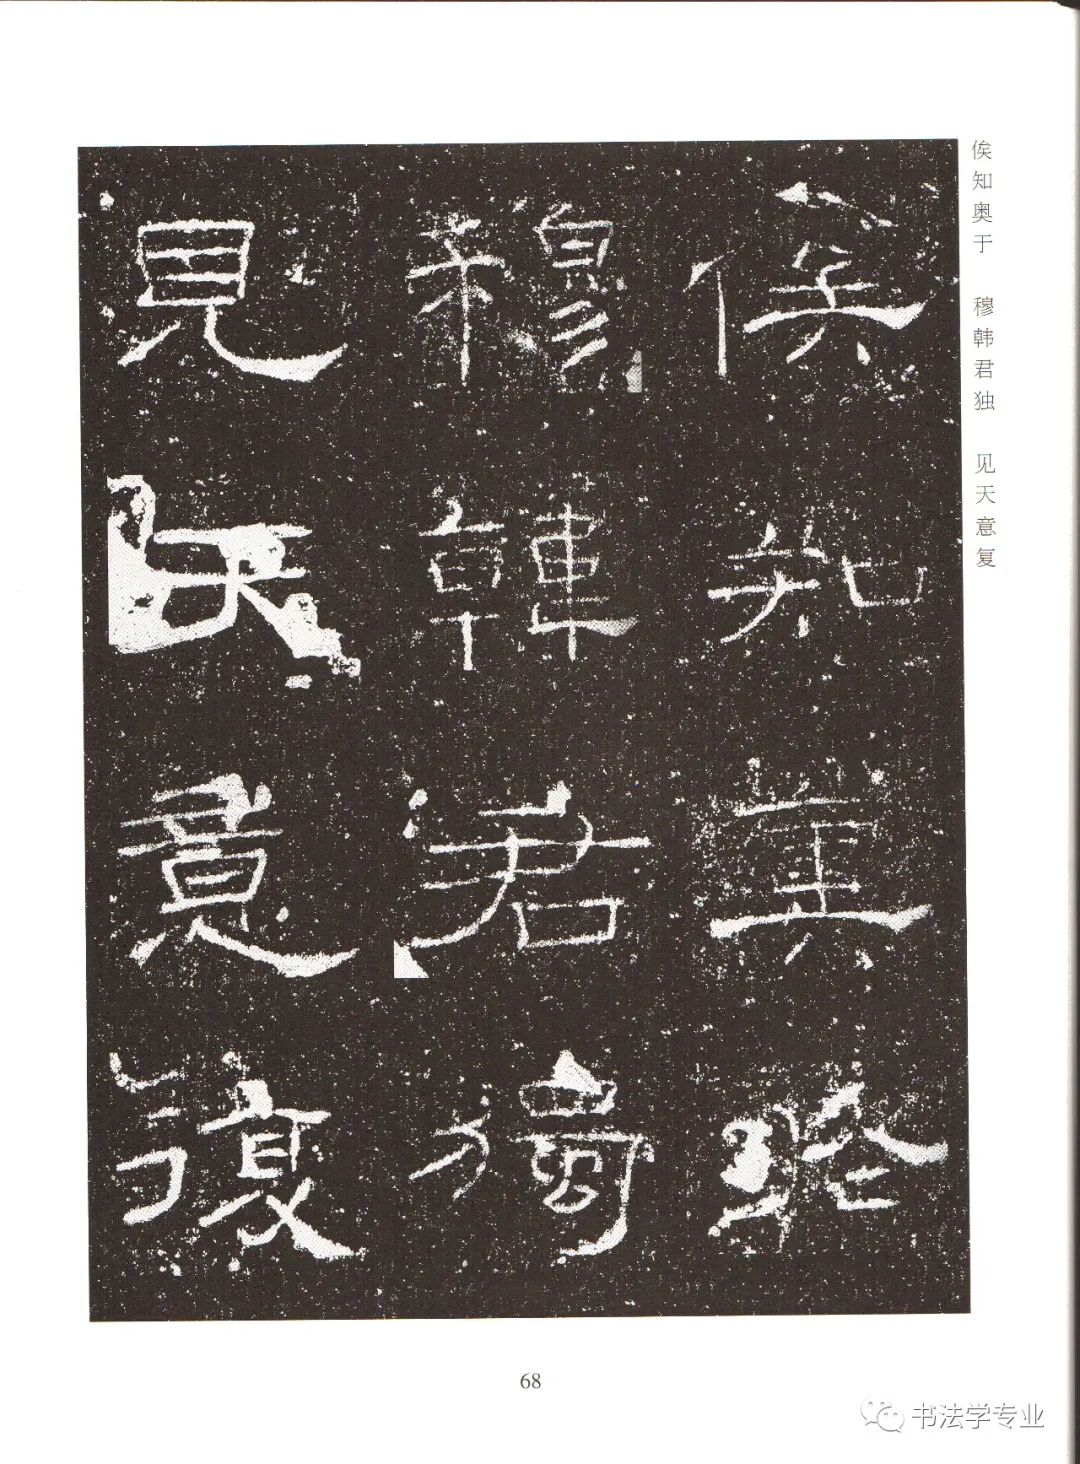 俟知奥于 穆韩君独 见天意复
俟知奧於
穆韓君獨
見天意復
68
书法学专业